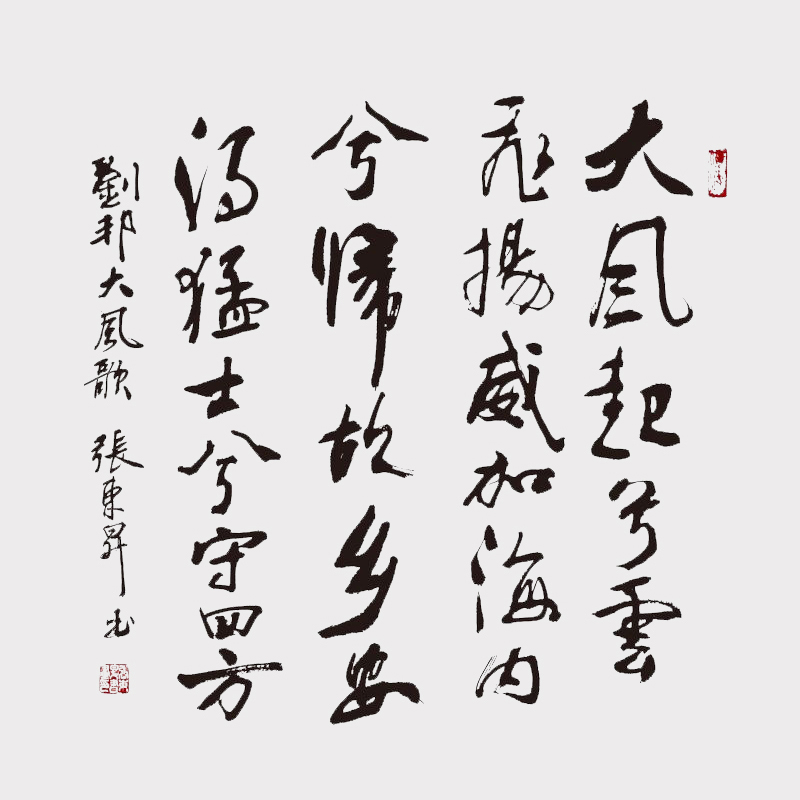 大風起兮雲
飛揚威加海内
兮歸故乡安
得猛士兮守四方
劉邦大風歌 張東昇书